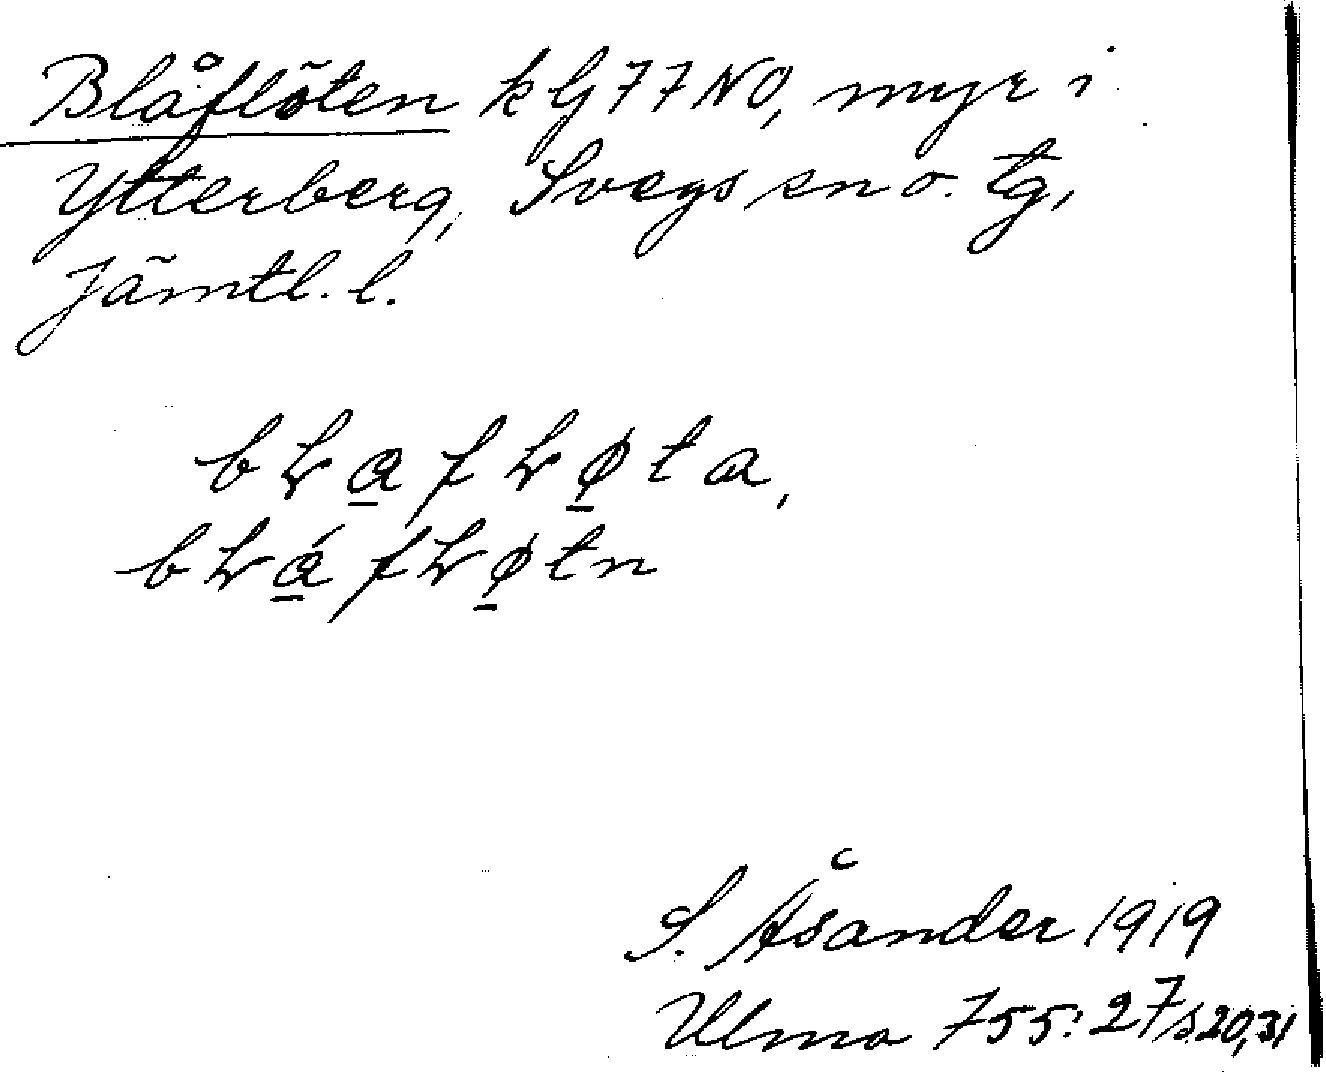 Blåflöten k G77NO, myr i
Ytterberg, Svegs sn o. tg,
Jämtl. l.
bɫa̲fɫø̲ta,
bɫá̲fɫø̲tn
S. Åsander 1919
Ulma 755:27 s.20,31